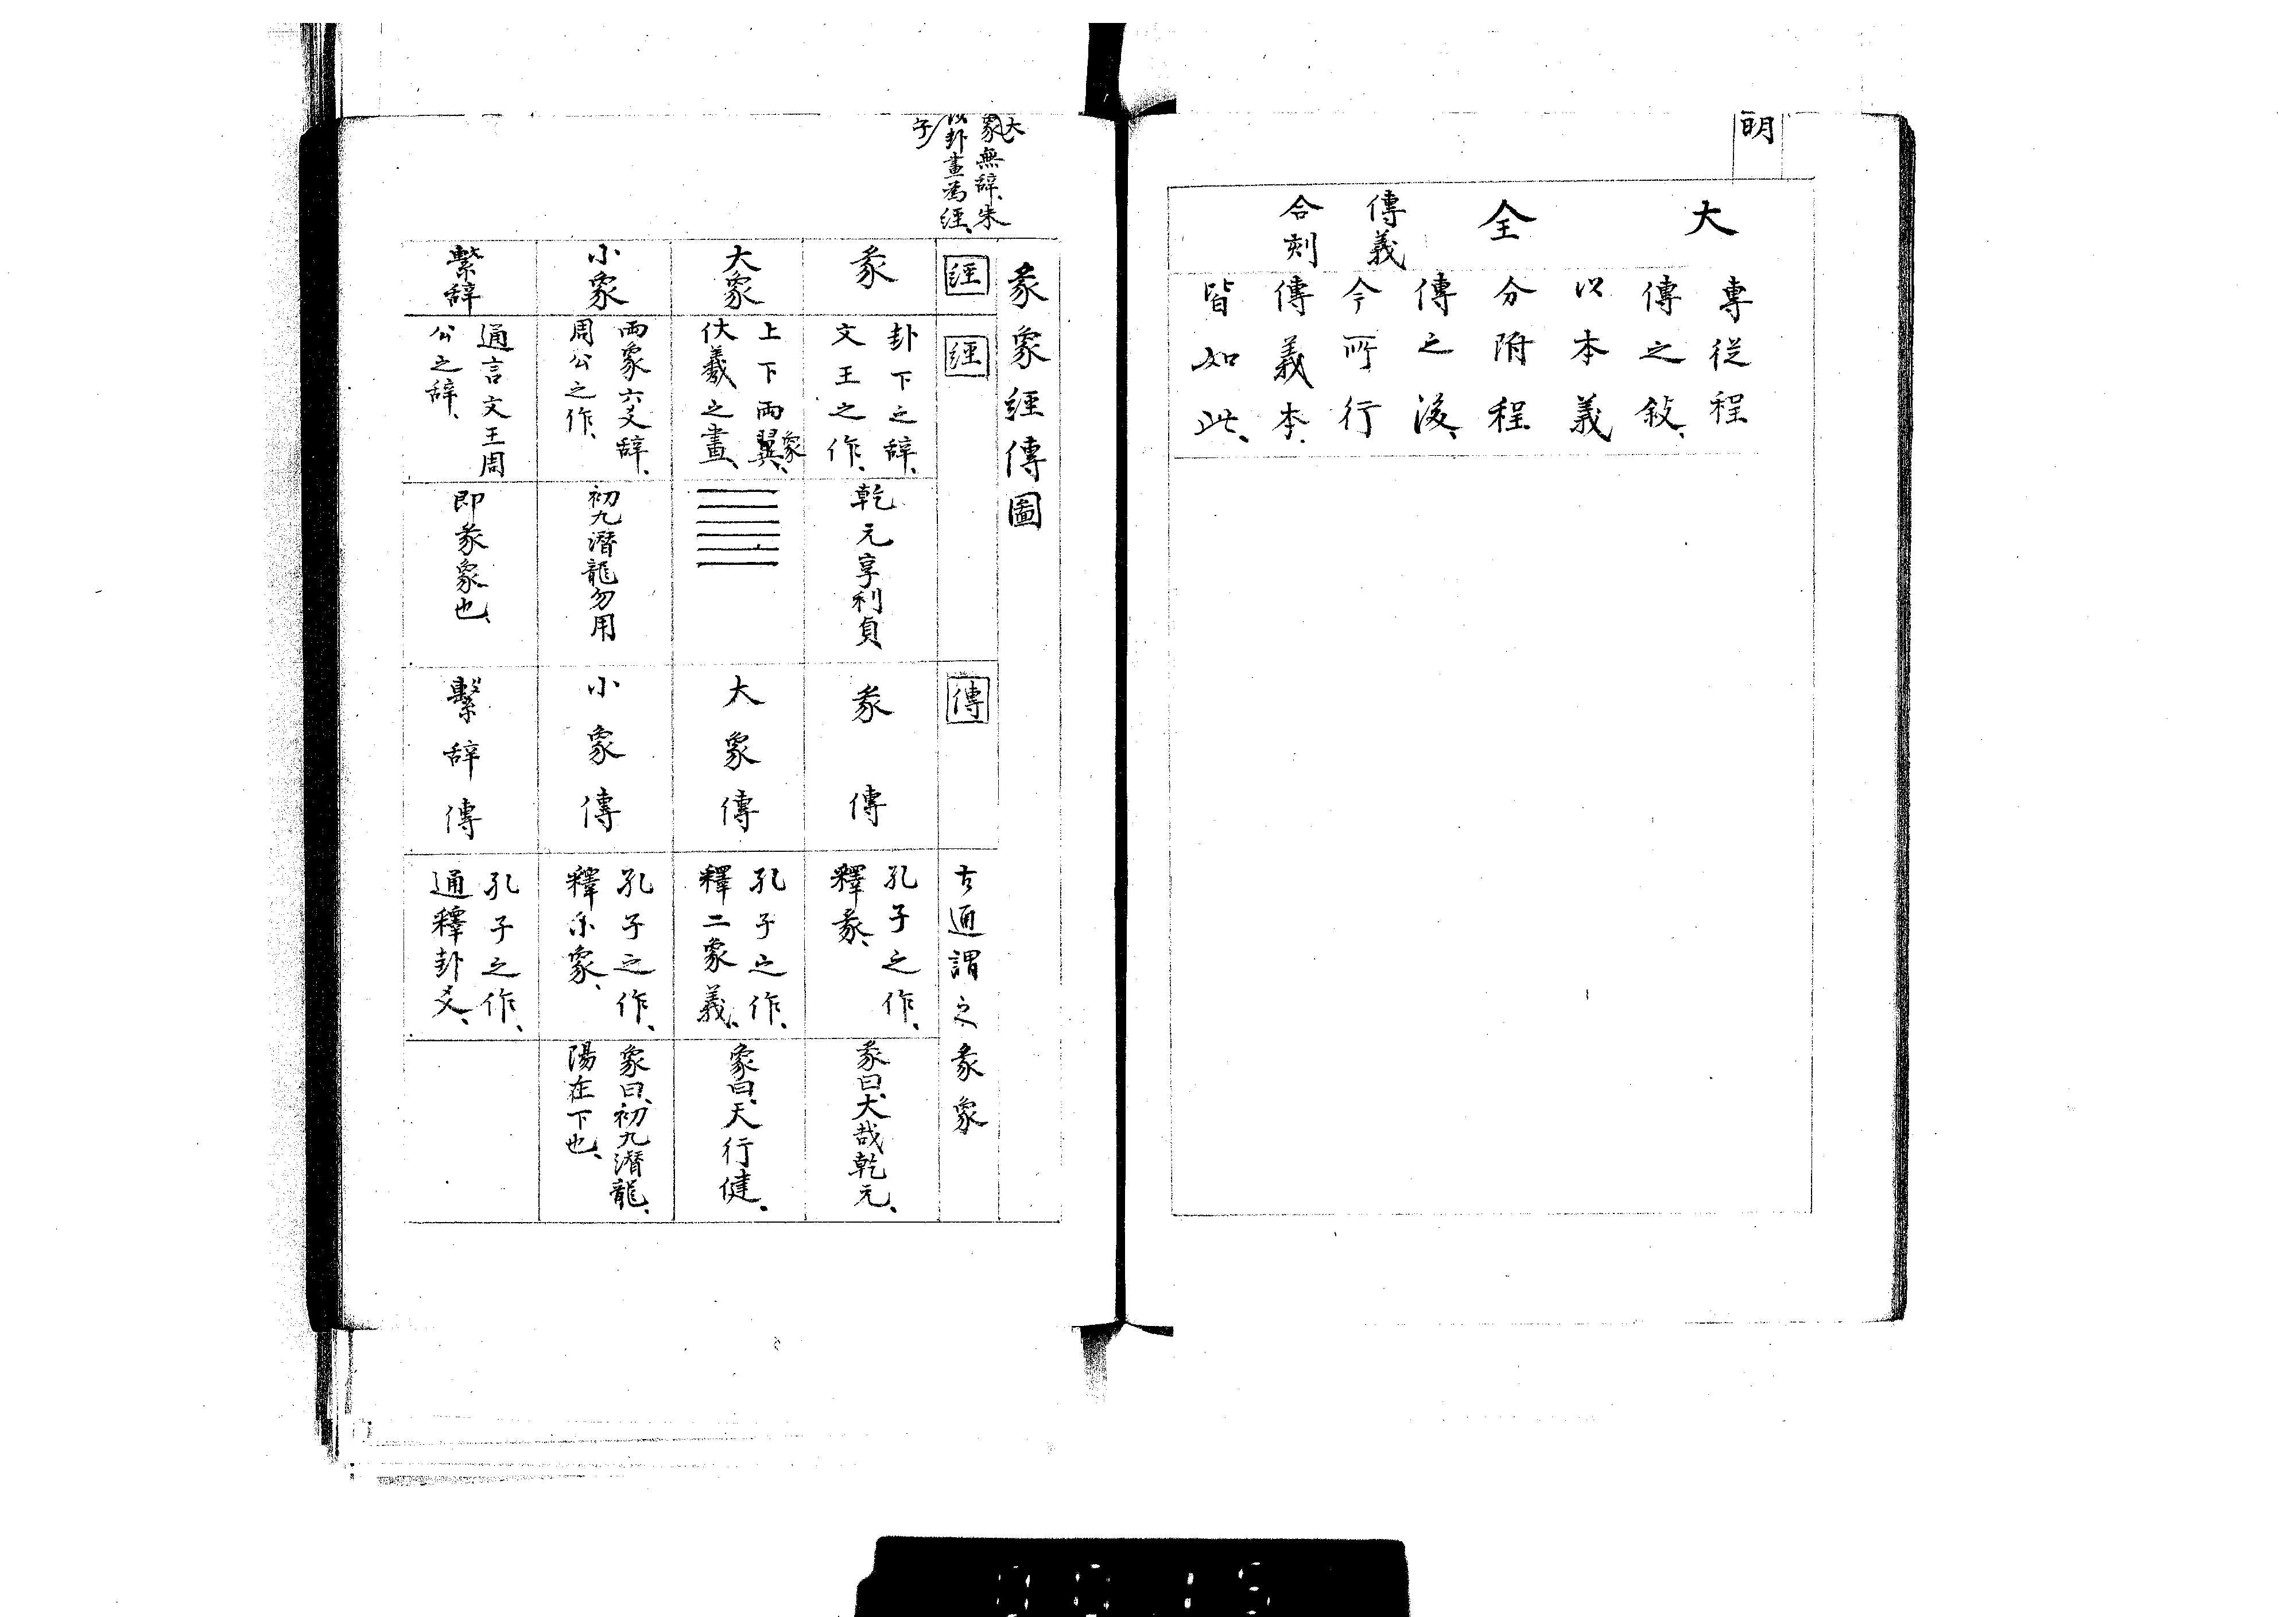 明
大全
傳義
合刻
專從程
傳之敍、
以本義
分附程
傳之後、
今所行
傳義本、
皆如此、
大
象無辭、朱
卦畫為經、
子
彖象經傳圖
經
經
傳
古通謂之彖象
彖
卦下之辞、
文王之作、
乾元亨利貞
彖傳
孔子之作、
釋彖、
彖曰、大哉乾元、
大象
上下兩翼、
象
伏羲之畫、
大象傳
孔子之作、
釋二象義、
象曰、天行健、
小象
兩象六爻辞、
周公之作、
初九潛龍勿用
小象傳
孔子之作、
釋小象、
象曰、初九潛龍、
陽在下也、
繫辞
通言文王周
公之辞、
即彖象也、
繫辞傳
孔子之作、
通釋卦爻、